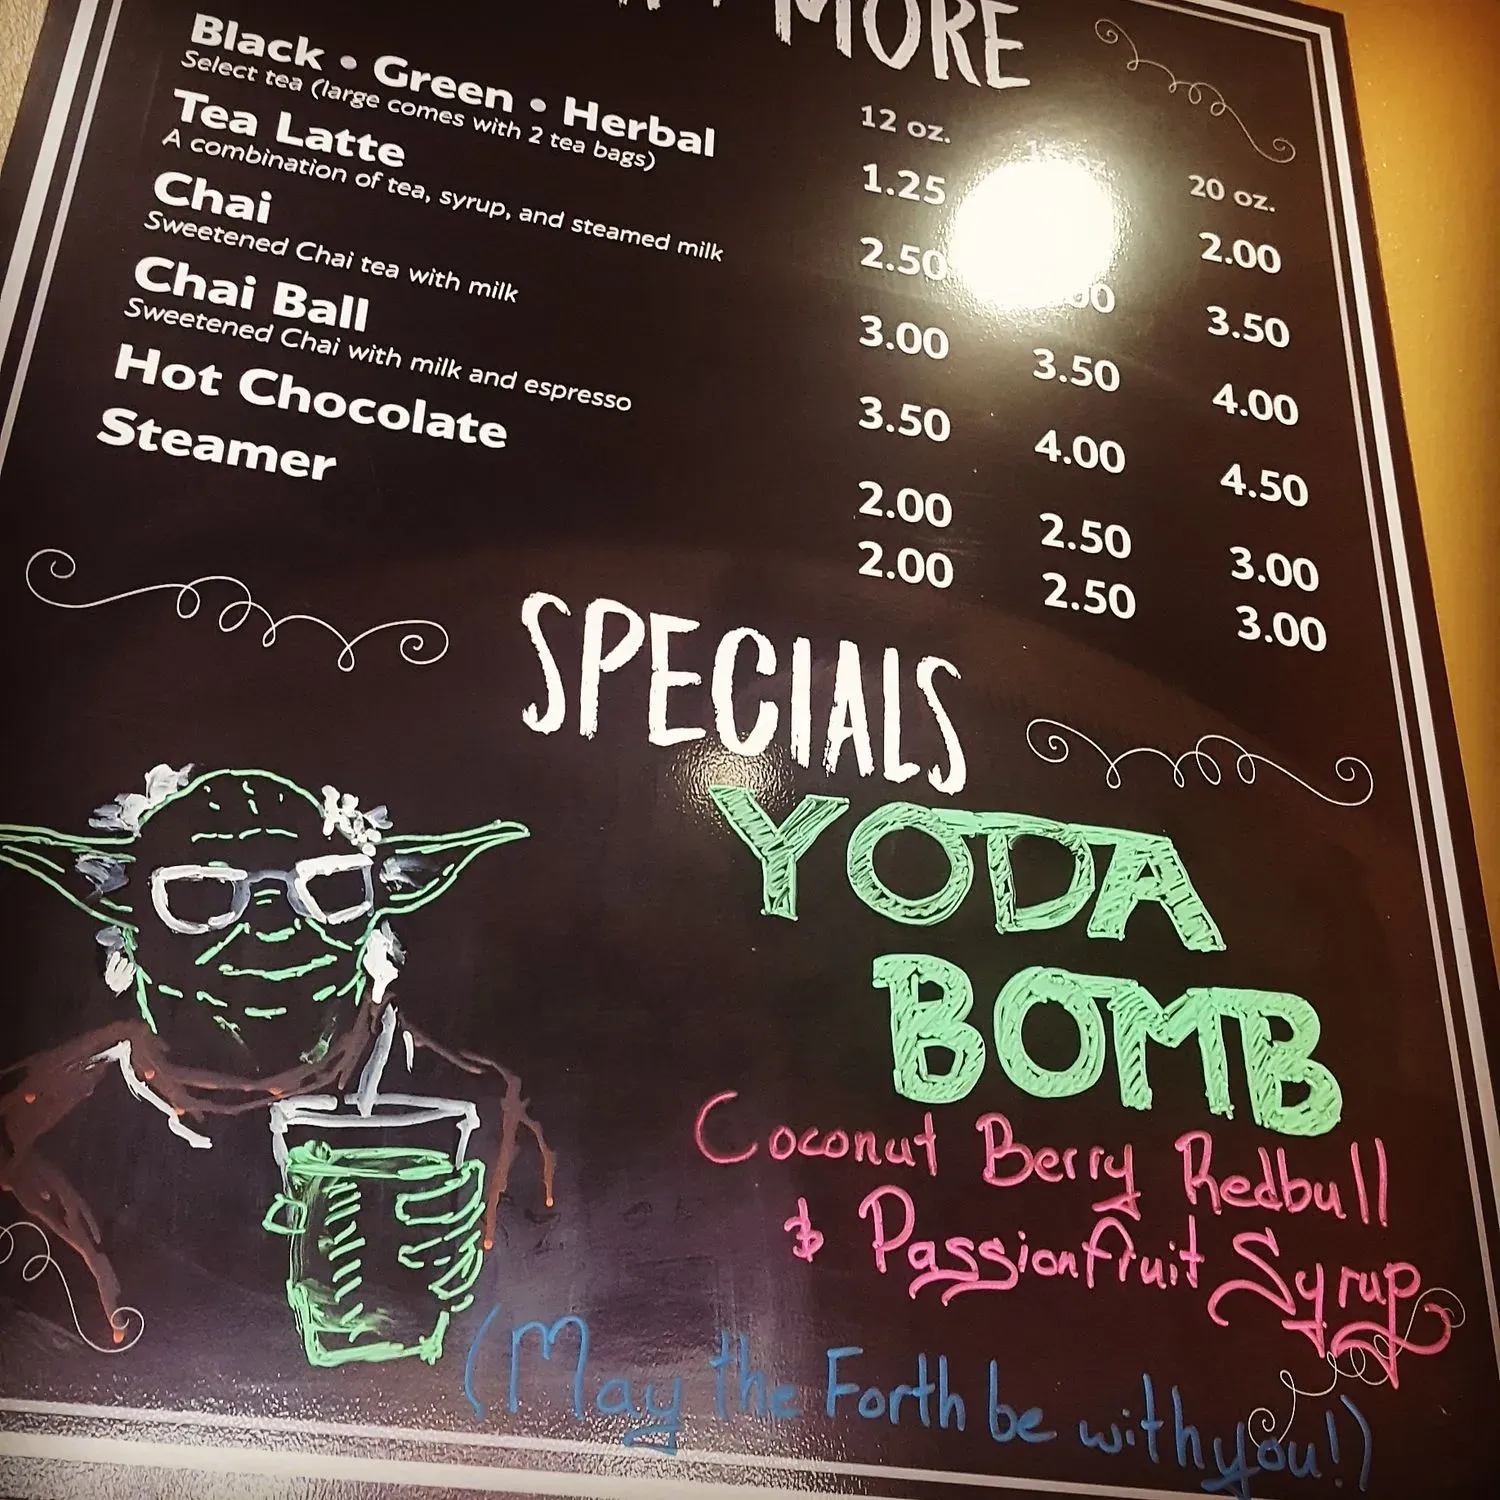 MORE
12 oz.
20 oz.
Black • Green • Herbal 1.25 2.00
Select tea (large comes with 2 tea bags)
Tea Latte 2.50 3.50
A combination of tea, syrup, and steamed milk
Chai 3.00 3.50 4.00
Sweetened Chai tea with milk
Chai Ball 3.50 4.00 4.50
Sweetened Chai with milk and espresso
Hot Chocolate 2.00 2.50 3.00
Steamer 2.00 2.50 3.00
SPECIALS
YODA
BOMB
Coconut Berry Redbull
& Passionfruit Syrup
(May the Forth be with you!)